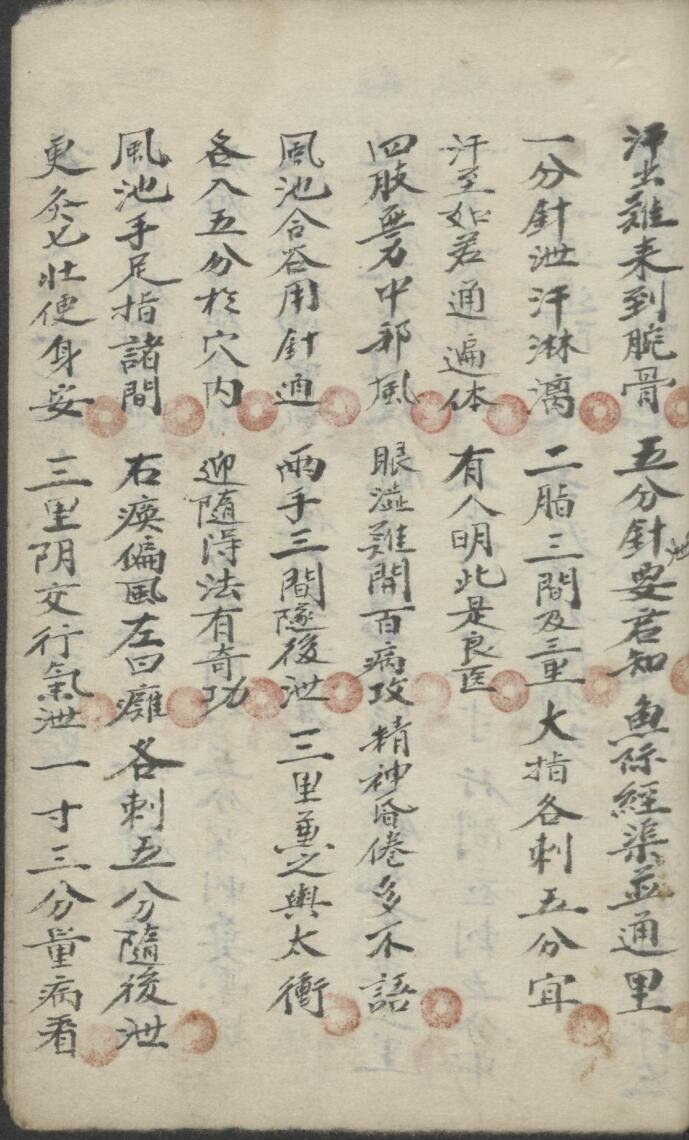 汗出難来到腕骨 五分針泄要君知 魚际經渠並通里
一分針泄汗淋漓 二脂三間及三里 大指各刺五分宜
汗至如若通遍体 有人明此是良医
四肢無力中邪風 眼澁難開百病攻 精神昏倦多不語
風池合谷用針通 兩手三間隧後泄 三里兼之與太衝
各入五分於穴内 迎隨得法有奇功
風池手足指諸間 右瘓偏風左曰癱 各刺五分隨後泄
更灸七壯便身安 三里阴交行氣泄 一寸三分量病看